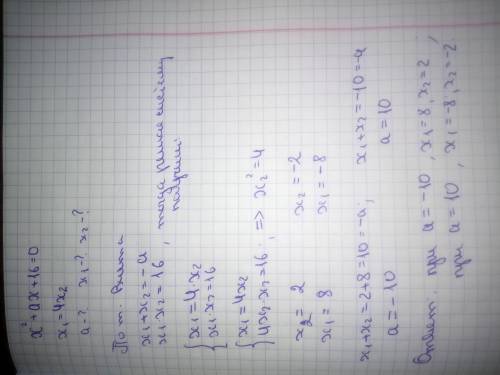 x² + ax + 16 = 0
x₁ = 4x₂
a - ? x₁ - ? x₂ - ?
По т. Виета
x₁ + x₂ = -a
x₁ · x₂ = 16 , тогда решив систему
получим:
{ x₁ = 4x₂
{ x₁ · x₂ = 16
{ x₁ = 4x₂
{ 4x₂ · x₂ = 16 ; => x₂² = 4
x₂ = 2 x₂ = -2
x₁ = 8 x₁ = -8
x₁ + x₂ = 2 + 8 = 10 = -a; x₁ + x₂ = -10 = -a
a = -10 a = 10
Ответ: при a = -10 , x₁ = 8, x₂ = 2 ;
при a = 10 , x₁ = -8; x₂ = -2